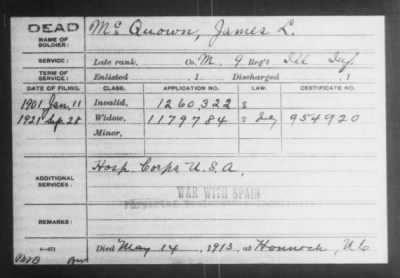 DEAD
NAME OF SOLDIER: Mc Quown, James L.
SERVICE: Late rank, Co. M, 9 Reg't Ill Inf.
TERM OF SERVICE: Enlisted , 1 . Discharged , 1
DATE OF FILING. CLASS. APPLICATION NO. LAW. CERTIFICATE NO.
1901 Jan. 11 Invalid, 1260,322 S
1921 Sep. 28 Widow, 1179784 S 954920
Minor,
Hosp. Corps U.S.A.
ADDITIONAL SERVICES:
WAR WITH SPAIN
REMARKS:
Died May 14, 1913, at